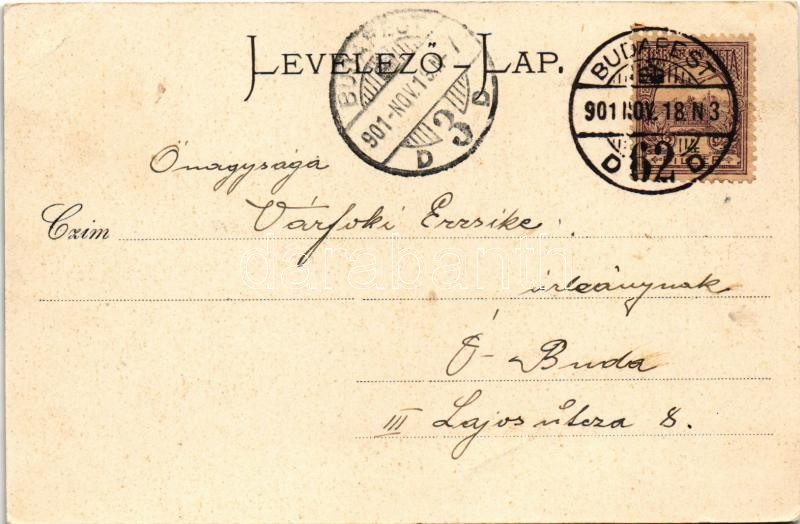 LEVELEZŐ-LAP.
BUDAPEST
901-NOV.18.
D 3 D
BUDAPEST
901 NOV. 18. N 3
D 62 D
Őnagysága
Czim Várfoki Erzsike
urleánynak
Ó-Buda
III Lajos útcza 8.
darabanth